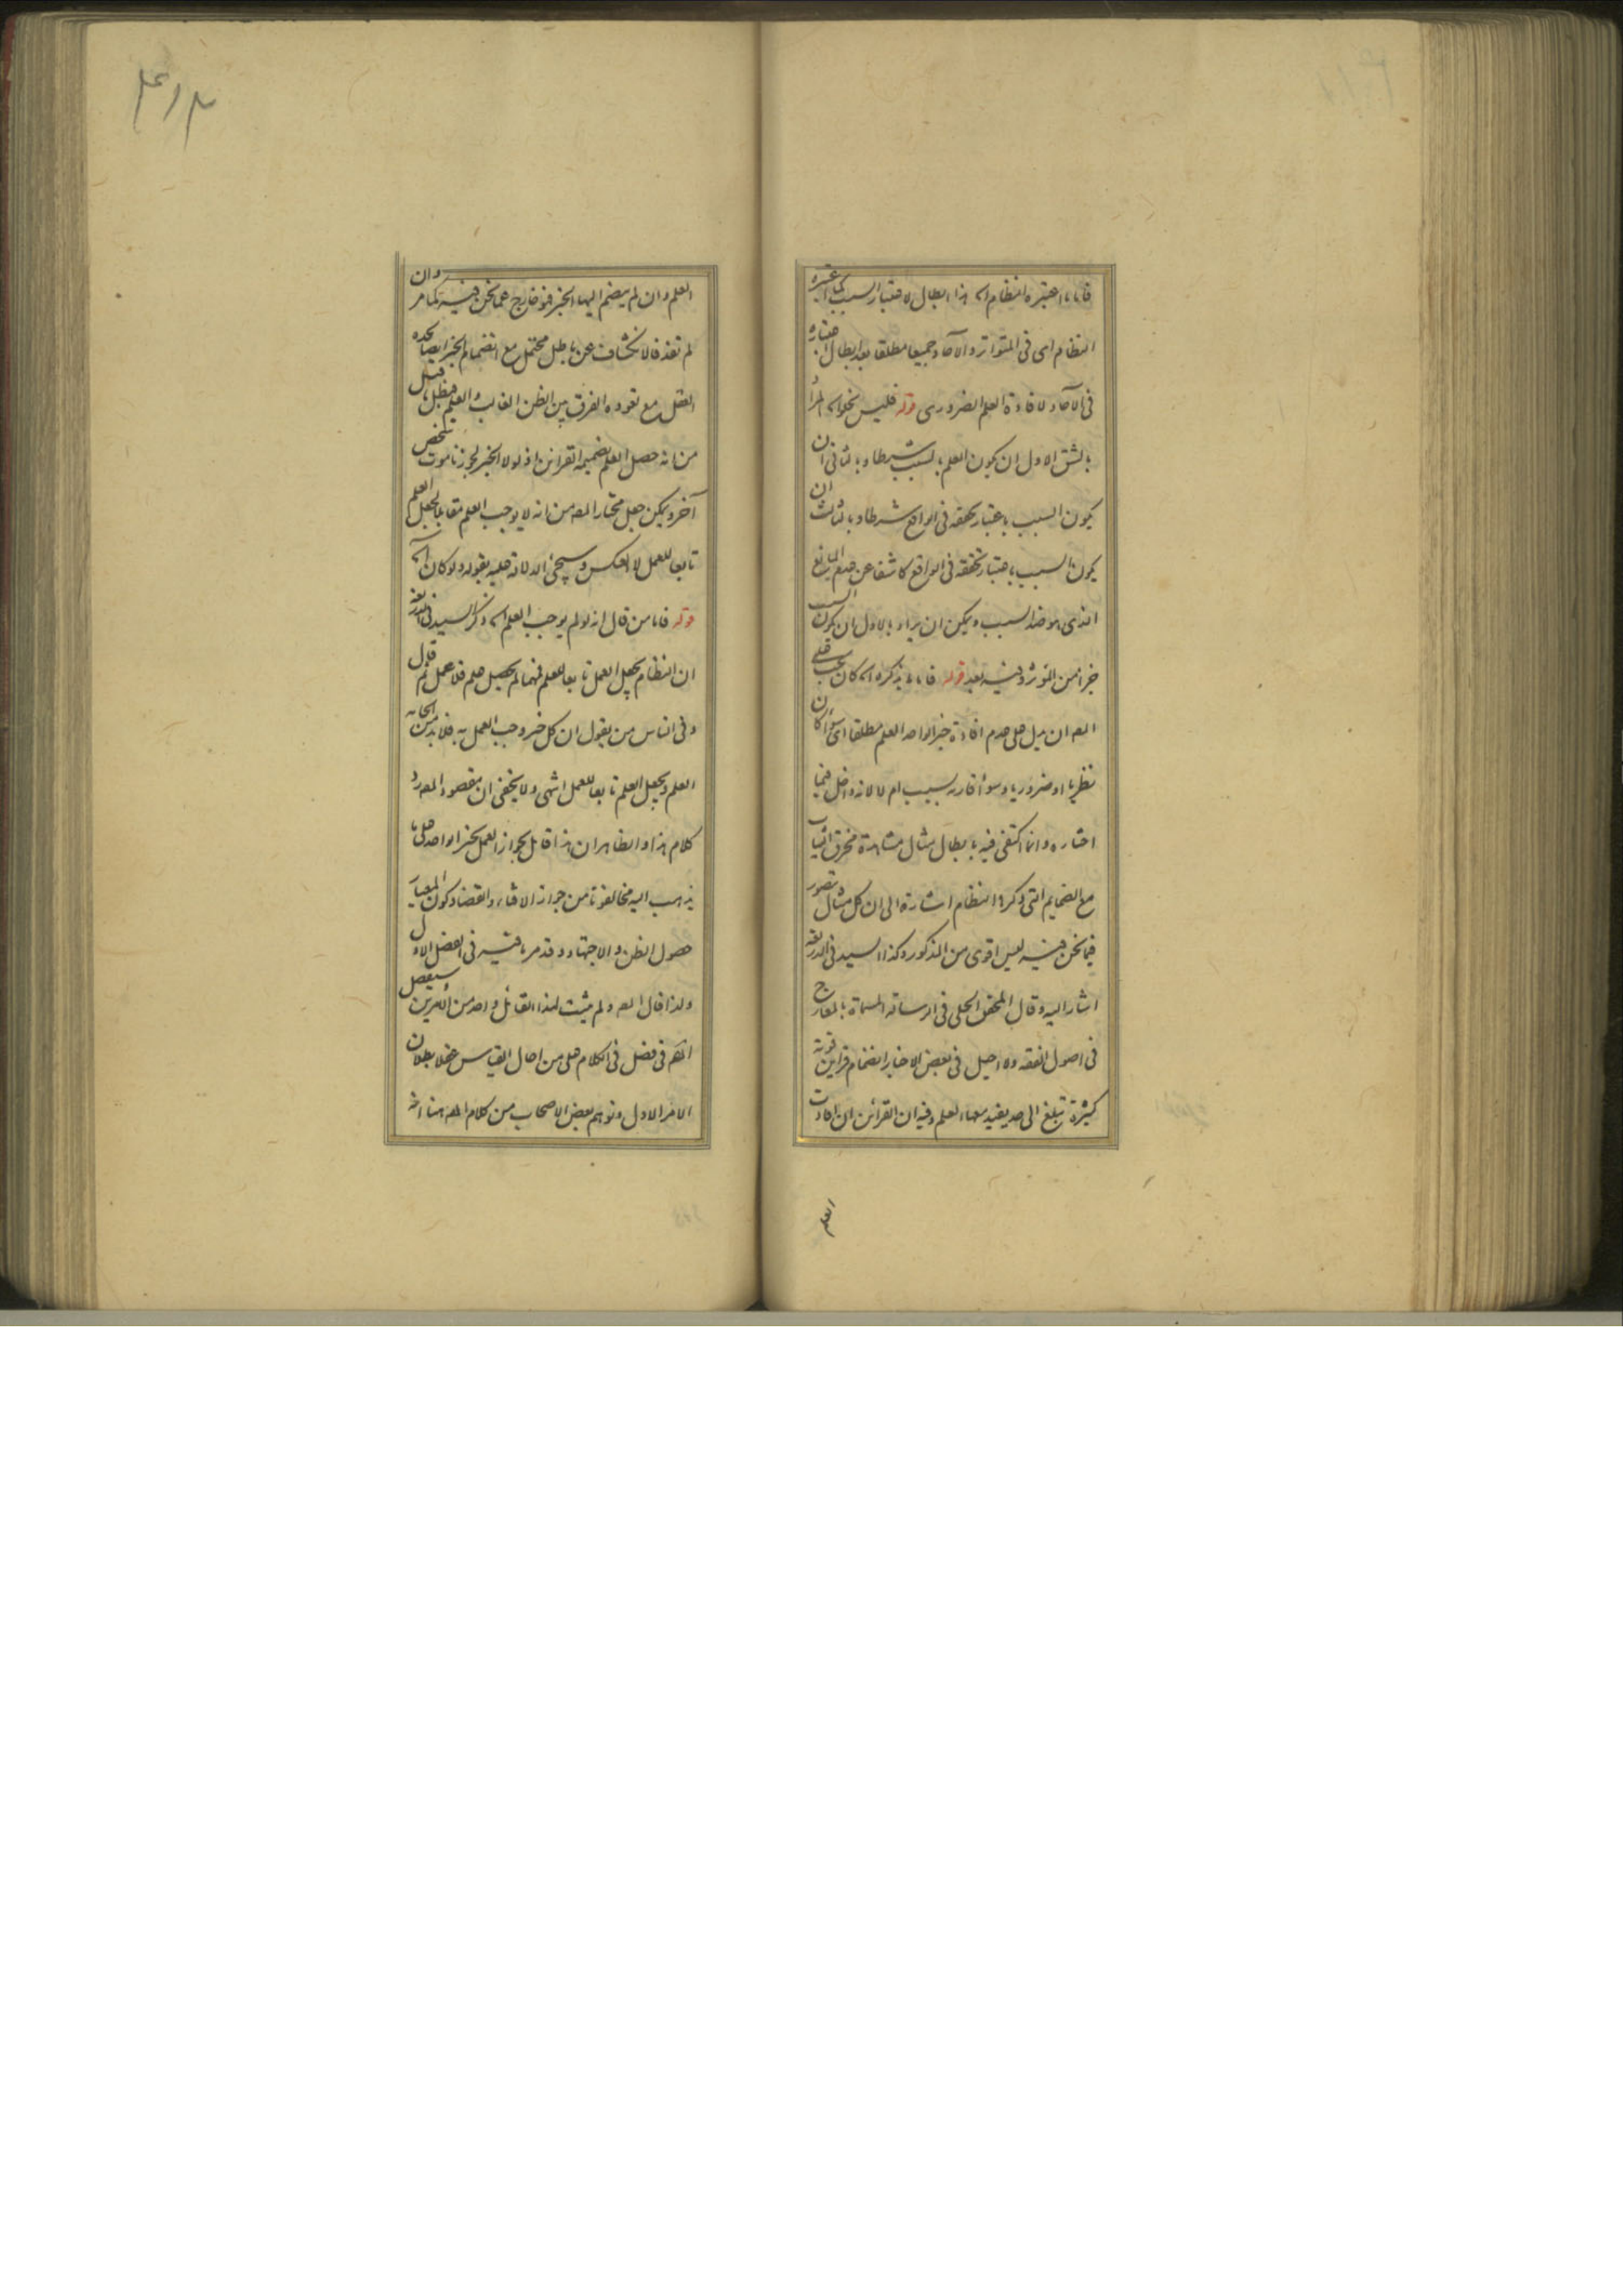 فاما ما اعتبره النظام اه هذا ابطال لاعتبار السبب كما اعتبره
النظام اى فى المتواتر والآحاد جميعا مطلقا بعد ابطال اعتباره
فى الآحاد لافادة العلم الضرورى قوله فليس يخلو اه المراد
بالشق الاول ان يكون العلم بالسبب شرطا وبالثانى ان
يكون السبب باعتبار تحققه فى الواقع شرطا وبالثالث ان
يكون السبب باعتبار تحققه فى الواقع كاشفا عن عدم المانع
الذى هو ضد السبب ويمكن ان يراد بالاول ان يكون السبب
جزأ من المؤثر وفيه بعد قوله فاما ما يذكره اه كان يجب على
المص ان يدل على عدم افادة خبر الواحد العلم مطلقا اى سواء كان
نظريا او ضروريا وسواء قارنه سبب ام لا لانه داخل فيما
اختاره وانما اكتفى فيه بابطال مثال مشاهدة مخرق الثياب
مع الضمايم التى ذكرها النظام اشارة الى ان كل مثال يتصور
فيما نحن فيه ليس اقوى من المذكور وكذا السيد فى الذريعة
اشار اليه وقال المحقق الحلى فى الرسالة المسماة بالمعارج
فى اصول الفقه ولا احيل فى بعض الاخبار انضمام قراين قوية
كثيرة تبلغ الى حد يفيد معها العلم وفيه ان القرائن ان افادت
العلم
العلم وان لم ينضم اليها الخبر فهو خارج عما نحن فيه كما مر وان
لم تفد فالانكشاف عن باطل محتمل مع انضمام الخبر ايضا يجده
العقل مع تعوده الفرق بين الظن الغالب والعلم فبطل ما قيل
من انه حصل العلم بضميمة القرائن اذ لولا الخبر لجوزنا موت شخص
آخر ويمكن جعل مختار المص من انه لا يوجب العلم مقابلا لجعل العلم
تابعا للعمل لا العكس وسيجئ الدلالة عليه بقوله ولو كان اه
قوله فاما من قال انه لو لم يوجب العلم اه ذكر السيد فى الذريعة
ان النظام يجعل العمل تابعا للعلم فمهما لم يحصل علم فلا عمل ثم قال
وفى الناس من يقول ان كل خبر وجب العمل به فلا بد من ايجابه
العلم ويجعل العلم تابعا للعمل انتهى ولا يخفى ان مقصود المص رد
كلام هذا والظاهر ان هذا قائل بجواز العمل بخبر الواحد على ما
يذهب اليه مخالفونا من جواز الافتاء والقضاء وكون المعيار
حصول الظن والاجتهاد وقد مر ما فيه فى الفصل الاول
ولذا قال المص ولم يثبت لهذا القائل واحد من الامرين سيفصل
المص فى فصل فى الكلام على من احال القياس عقلا بطلان
الامر الاول وتوهم بعض الاصحاب من كلام المص هنا انه